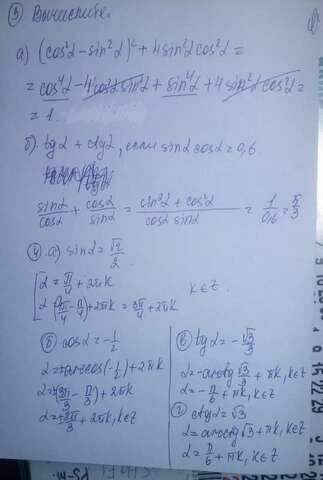 ③ Вычислите.
а) (cos²α − sin²α)² + 4sin²α cos²α =
= cos⁴α − 4cos²α sin²α + sin⁴α + 4sin²α cos²α =
= 1.
б) tgα + ctgα, если sinα cosα = 0,6.
sinα/cosα + cosα/sinα = (sin²α + cos²α)/(cosα sinα) = 1/0,6 = 5/3
④ а) sinα = √2/2
α = π/4 + 2πk
k∈Z
α = (4π/4 − π/4) + 2πk = 3π/4 + 2πk
б) cosα = −1/2
α = ±arccos(−1/2) + 2πk
α = ±(3π/3 − π/3) + 2πk
α = ±2π/3 + 2πk, k∈Z
в) tgα = −√3/3
α = −arctg √3/3 + πk, k∈Z
α = −π/6 + πk, k∈Z
г) ctgα = √3
α = arcctg√3 + πk, k∈Z
α = π/6 + πk, k∈Z